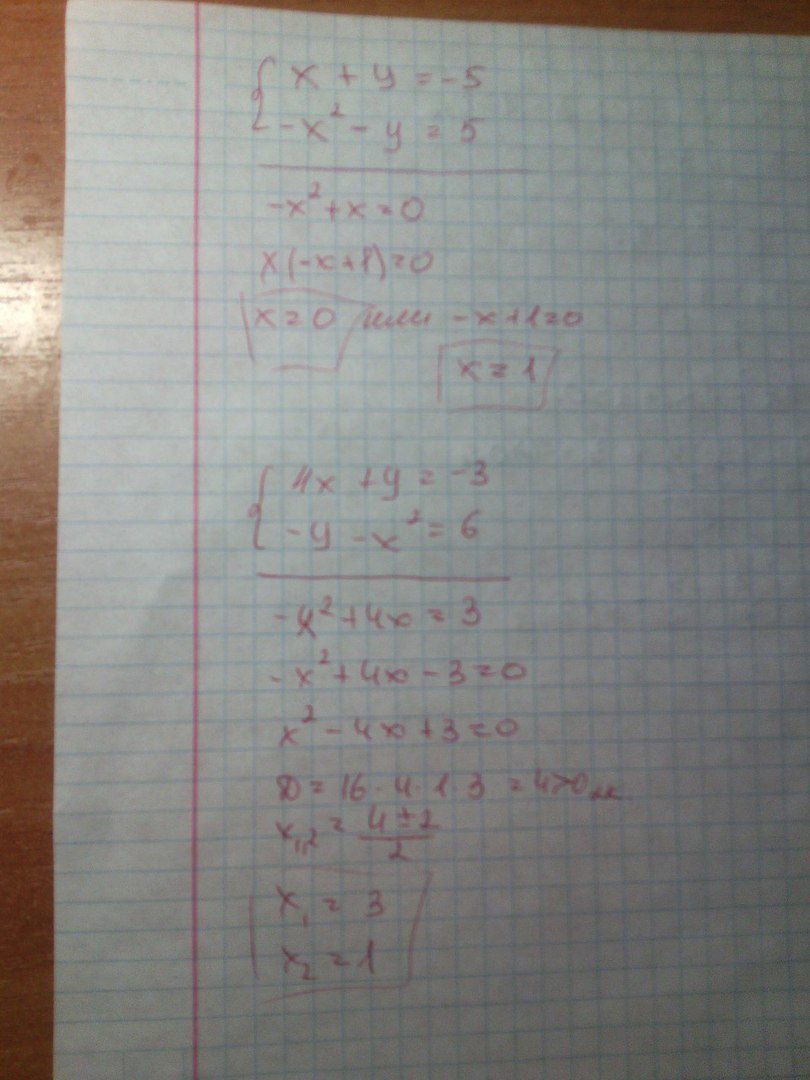 { x + y = -5
-x² - y = 5
-x² + x = 0
x(-x+1)=0
x=0 или -x+1=0
x=1
{ 4x + y = -3
-y - x² = 6
-x² + 4x = 3
-x² + 4x - 3 = 0
x² - 4x + 3 = 0
D = 16 - 4 · 1 · 3 = 4 > 0
x₁,₂ = (4 ± 2)/2
x₁ = 3
x₂ = 1